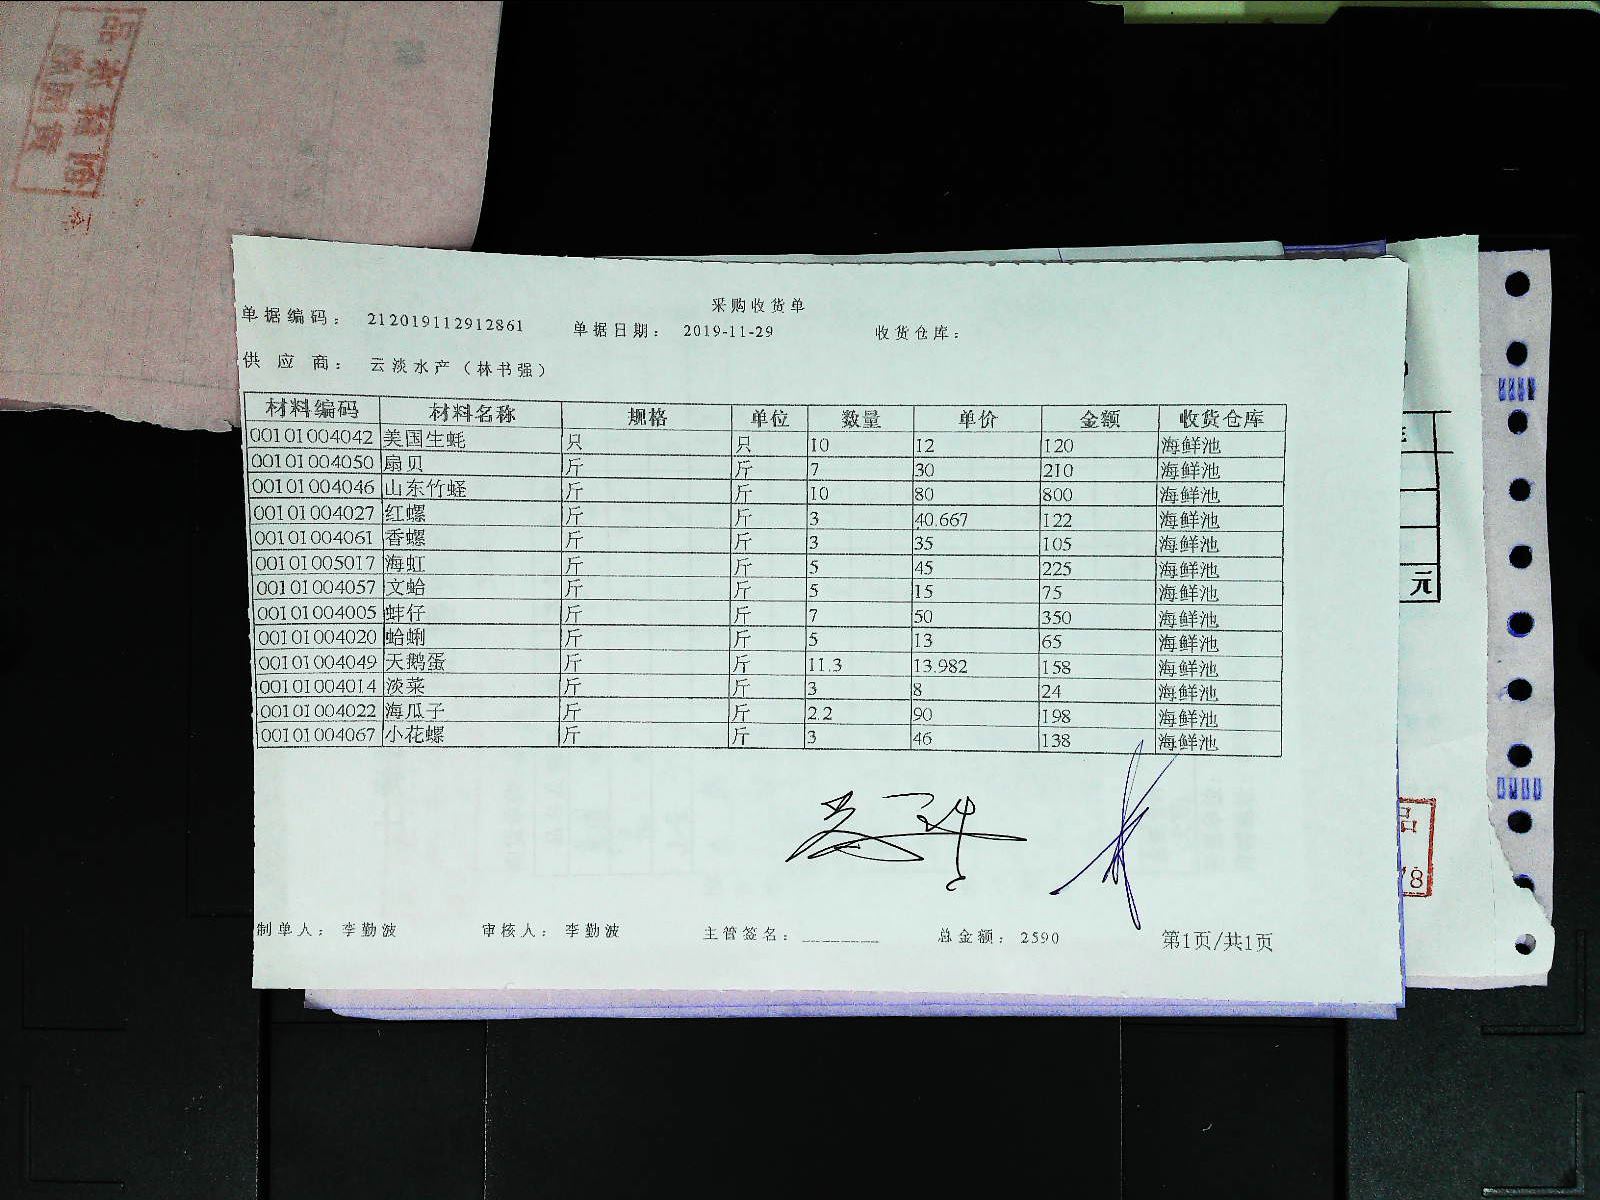 采购收货单
单据编码： 212019112912861 单据日期： 2019-11-29 收货仓库：
供应商： 云淡水产（林书强）
材料编码 材料名称 规格 单位 数量 单价 金额 收货仓库
00101004042 美国生蚝 只 只 10 12 120 海鲜池
00101004050 扇贝 斤 斤 7 30 210 海鲜池
00101004046 山东竹蛏 斤 斤 10 80 800 海鲜池
00101004027 红螺 斤 斤 3 40.667 122 海鲜池
00101004061 香螺 斤 斤 3 35 105 海鲜池
00101005017 海虹 斤 斤 5 45 225 海鲜池
00101004057 文蛤 斤 斤 5 15 75 海鲜池
00101004005 蚌仔 斤 斤 7 50 350 海鲜池
00101004020 蛤蜊 斤 斤 5 13 65 海鲜池
00101004049 天鹅蛋 斤 斤 11.3 13.982 158 海鲜池
00101004014 淡菜 斤 斤 3 8 24 海鲜池
00101004022 海瓜子 斤 斤 2.2 90 198 海鲜池
00101004067 小花螺 斤 斤 3 46 138 海鲜池
制单人： 李勤波 审核人： 李勤波 主管签名：________ 总金额： 2590 第1页/共1页
元
品
78